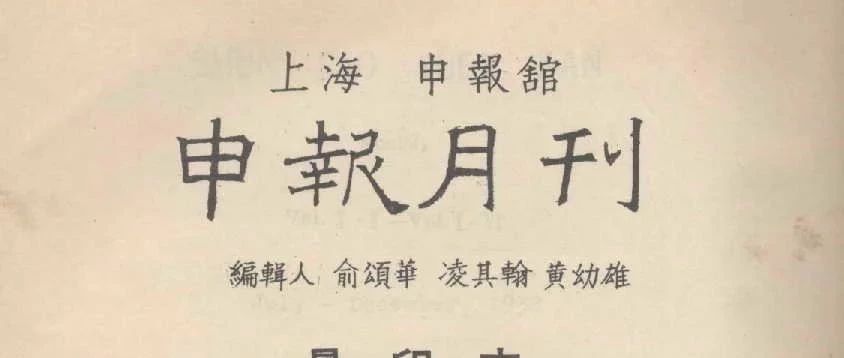 上海 申報舘
申報月刊
編輯人 俞頌華 凌其翰 黄幼雄